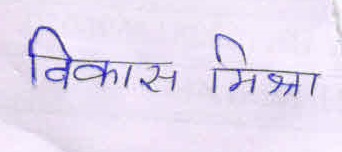 विकास मिश्रा